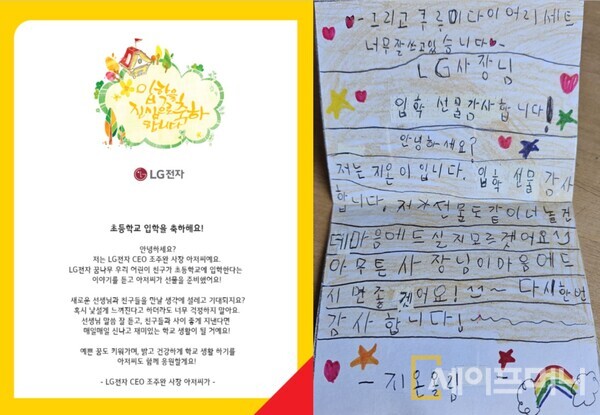 입학을
진심으로 축하
합니다
LG전자
초등학교 입학을 축하해요!
안녕하세요?
저는 LG전자 CEO 조주완 사장 아저씨예요.
LG전자 꿈나무 우리 어린이 친구가 초등학교에 입학한다는
이야기를 듣고 아저씨가 선물을 준비했어요!
새로운 선생님과 친구들을 만날 생각에 설레고 기대되지요?
혹시 낯설게 느껴진다고 하더라도 너무 걱정하지 말아요.
선생님 말씀 잘 듣고, 친구들과 사이 좋게 지낸다면
매일매일 신나고 재미있는 학교 생활이 될 거예요!
예쁜 꿈도 키워가며, 밝고 건강하게 학교 생활 하기를
아저씨도 함께 응원할게요!
- LG전자 CEO 조주완 사장 아저씨가 -
- 그리고 쿠루미다이어리세트
너무잘쓰고있습니다
LG사장님
입학 선물감사합니다!
안녕하세요?
저는 지온이입니다. 입학 선물 감사
합니다. 저가선물도 같이너놀건
데마음에드실지모르겠어요
아무튼사장님이마음에드
시면좋겠어요! 다시한번
감사합니다!
- 지온올림 -
세이프머니